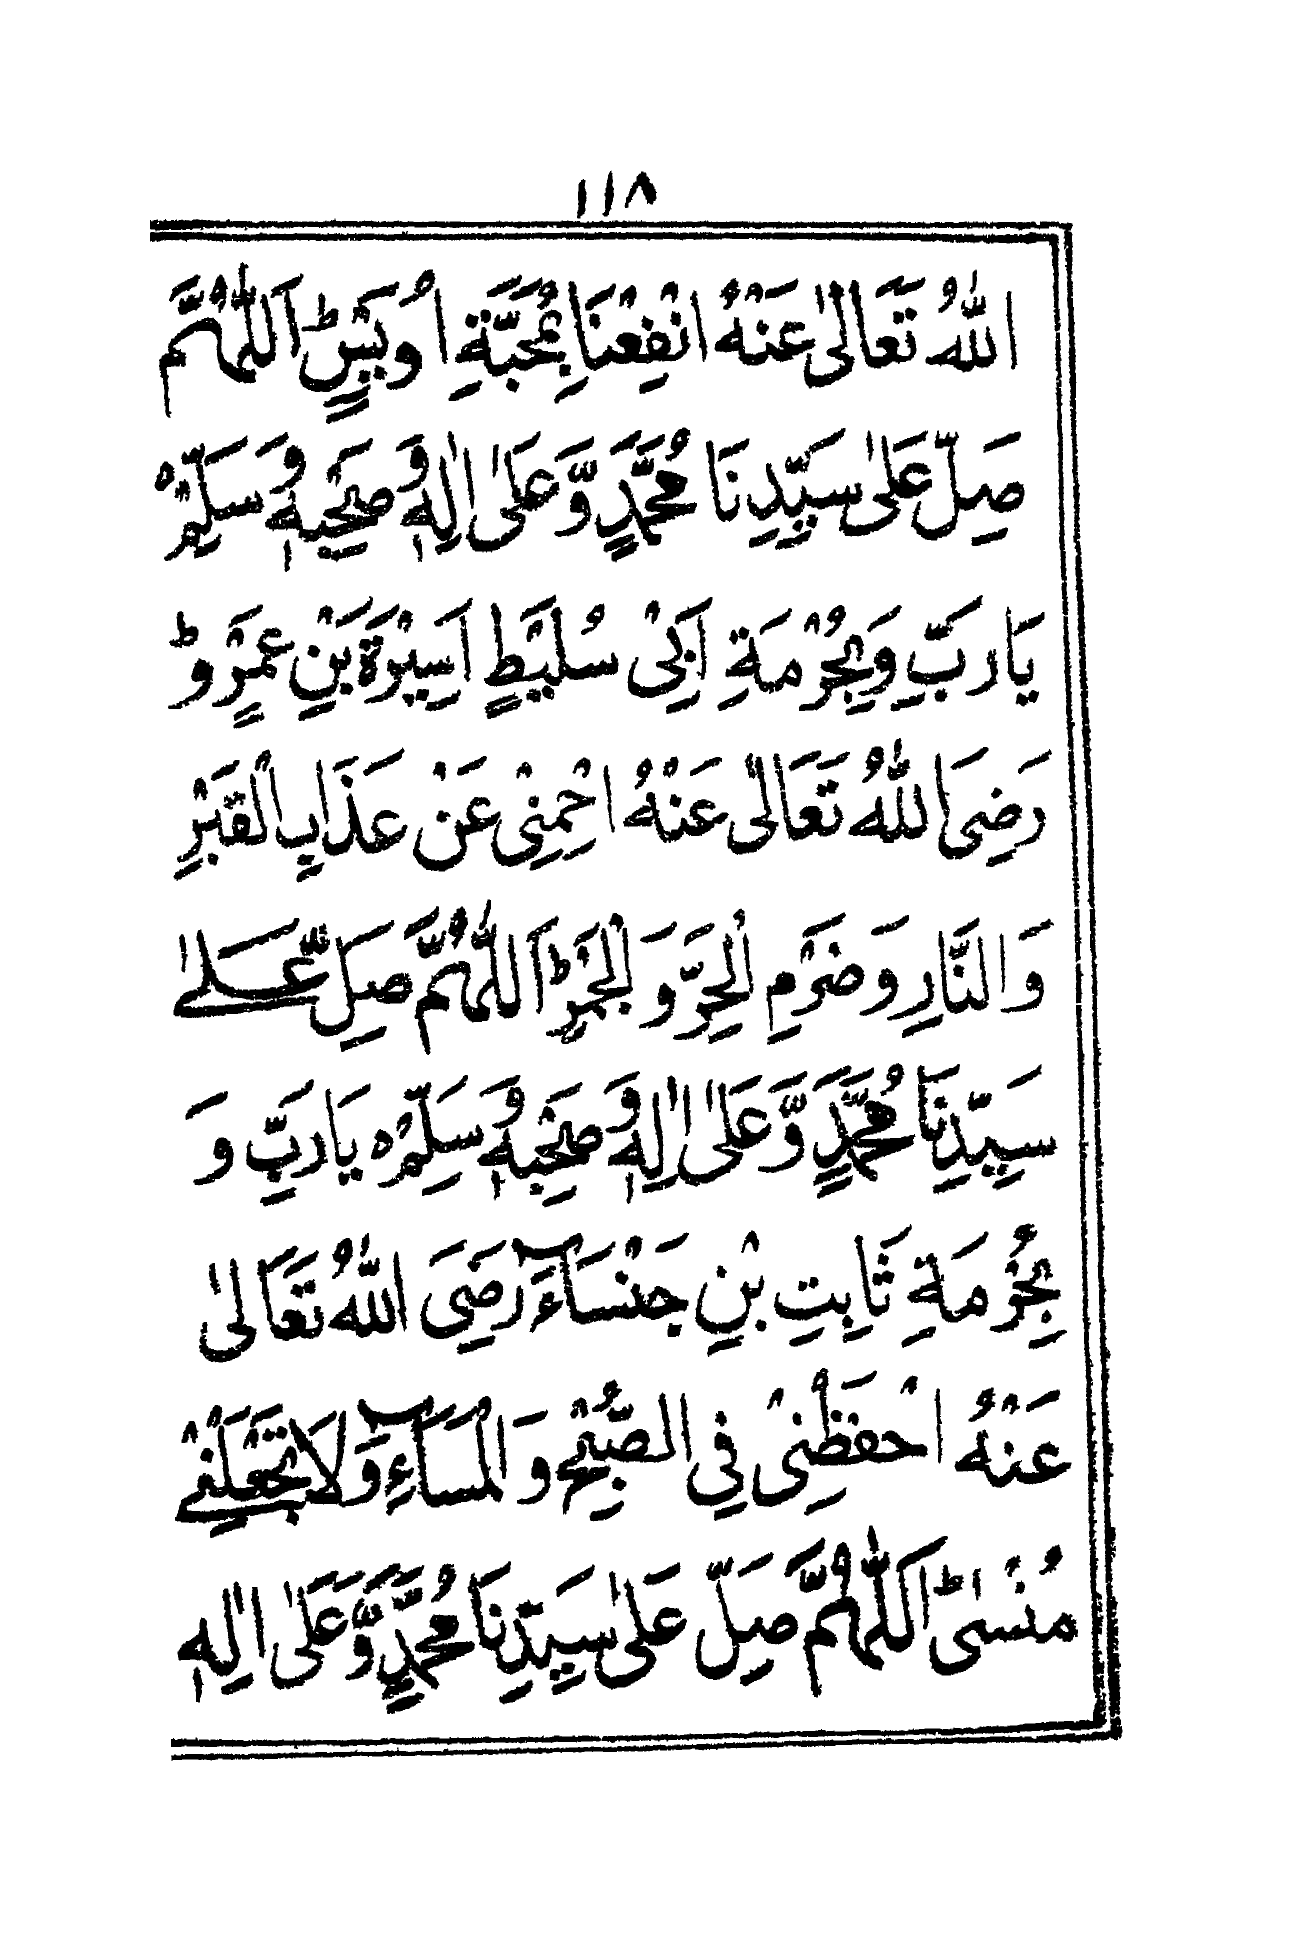 ١١٨
اللهُ تَعَالٰى عَنْهُ انْفِعْنَا بِمُحَبَّةِ اُوَيْسٍ ط اَللّٰهُمَّ
صَلِّ عَلٰى سَيِّدِنَا مُحَمَّدٍ وَّعَلٰى اٰلِهٖ وَصَحْبِهٖ وَسَلِّمْ ہ
يَارَبِّ وَبِحُرْمَةِ اَبِىْ سُلَيْطٍ اَسِيْرَةَ بْنِ عَمْرٍو ط
رَضِىَ اللّٰهُ تَعَالٰى عَنْهُ احْمِنِىْ عَنْ عَذَابِ الْقَبْرِ
وَالنَّارِ وَضَرَمِ الْحَرِّ وَالْجَمْرِ ط اَللّٰهُمَّ صَلِّ عَلٰے
سَيِّدِنَا مُحَمَّدٍ وَّعَلٰى اٰلِهٖ وَصَحْبِهٖ وَسَلِّمْ ہ يَارَبِّ وَ
بِحُرْمَةِ ثَابِتِ بْنِ خَنْسَآءَ رَضِىَ اللّٰهُ تَعَالٰى
عَنْهُ احْفَظْنِىْ فِى الصُّبْحِ وَالْمَسَآءِ وَلَا تَجْعَلْنِے
مُنْسٰى ط اَللّٰهُمَّ صَلِّ عَلٰى سَيِّدِنَا مُحَمَّدٍ وَّعَلٰى اٰلِهٖ